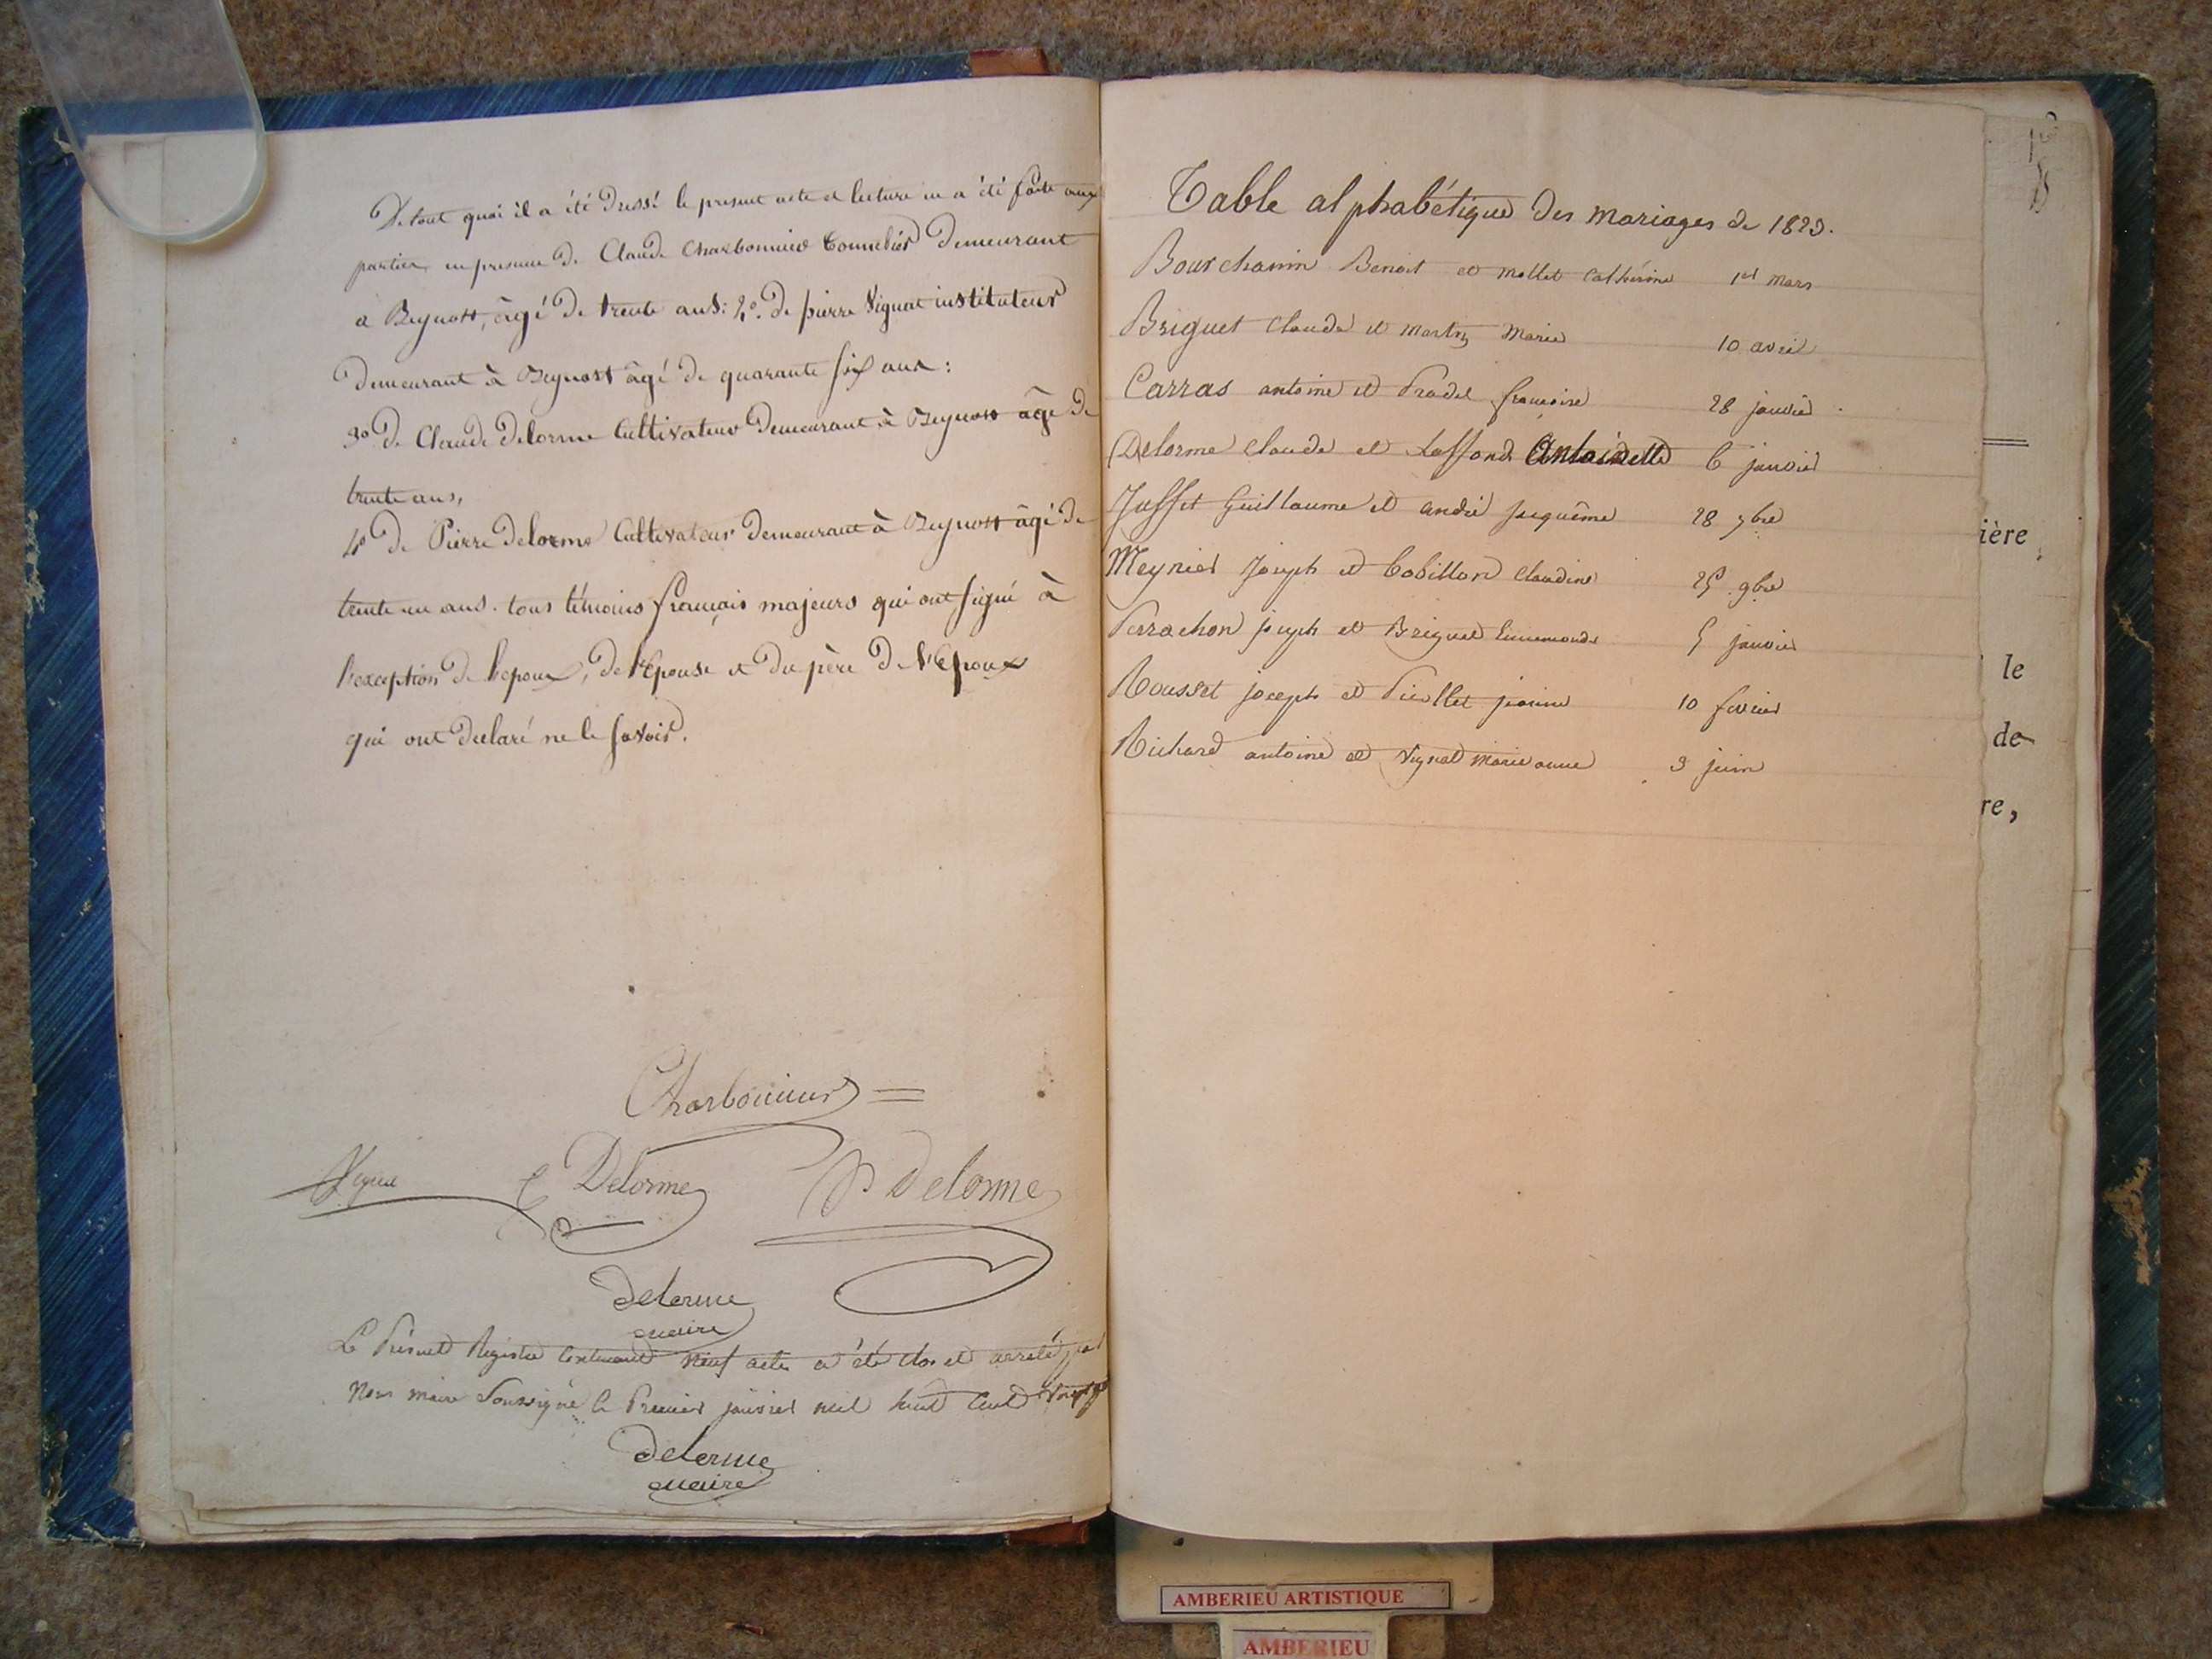 De tout quoi il a été Dressé le present acte et lecture en a été faite aux
parties en presence De Claude Charbonnier tonnelier Demeurant
a Beynost, âgé De trente ans: 2.º De pierre Vignat instituteur
Demeurant à Beynost âgé De quarante six ans:
3º De Claude Delorme Cultivateur Demeurant à Beynost âgé De
trente ans,
4º De Pierre Delorme Cultivateur Demeurant à Beynost âgé De
trente un ans. tous témoins français majeurs qui ont signé à
l'exception De l'epoux, De l'Epouse et Du père De l'Epoux
qui ont Declaré ne le savoir.
Charbonnier
Vignat C Delorme P Delorme
Delorme
maire
Le Présent Registre Contenant Neuf actes a été clos et arrêté par
Nous maire Soussigné le Premier janvier mil huit Cent
Delorme
maire
Table alphabétique Des mariages de 1823.
Bourchanin Benoit et mollet Cathérine 1er mars
Briguet Claude et Martin Marie 10 avril
Carras antoine et Pradel françoise 28 janvier
Delorme Claude et Laffond Antoinette 6 janvier
Juffet Guillaume et andré 28 7bre
Meynier Joseph et Cobillon Claudine 25 9bre
Perrachon joseph et Briguet Ennemonde 5 janvier
Rousset joseph et jeanne 10 fevrier
Richard antoine et Vignat Marie anne 3 juin
ière
le
de
re,
AMBERIEU ARTISTIQUE
AMBERIEU